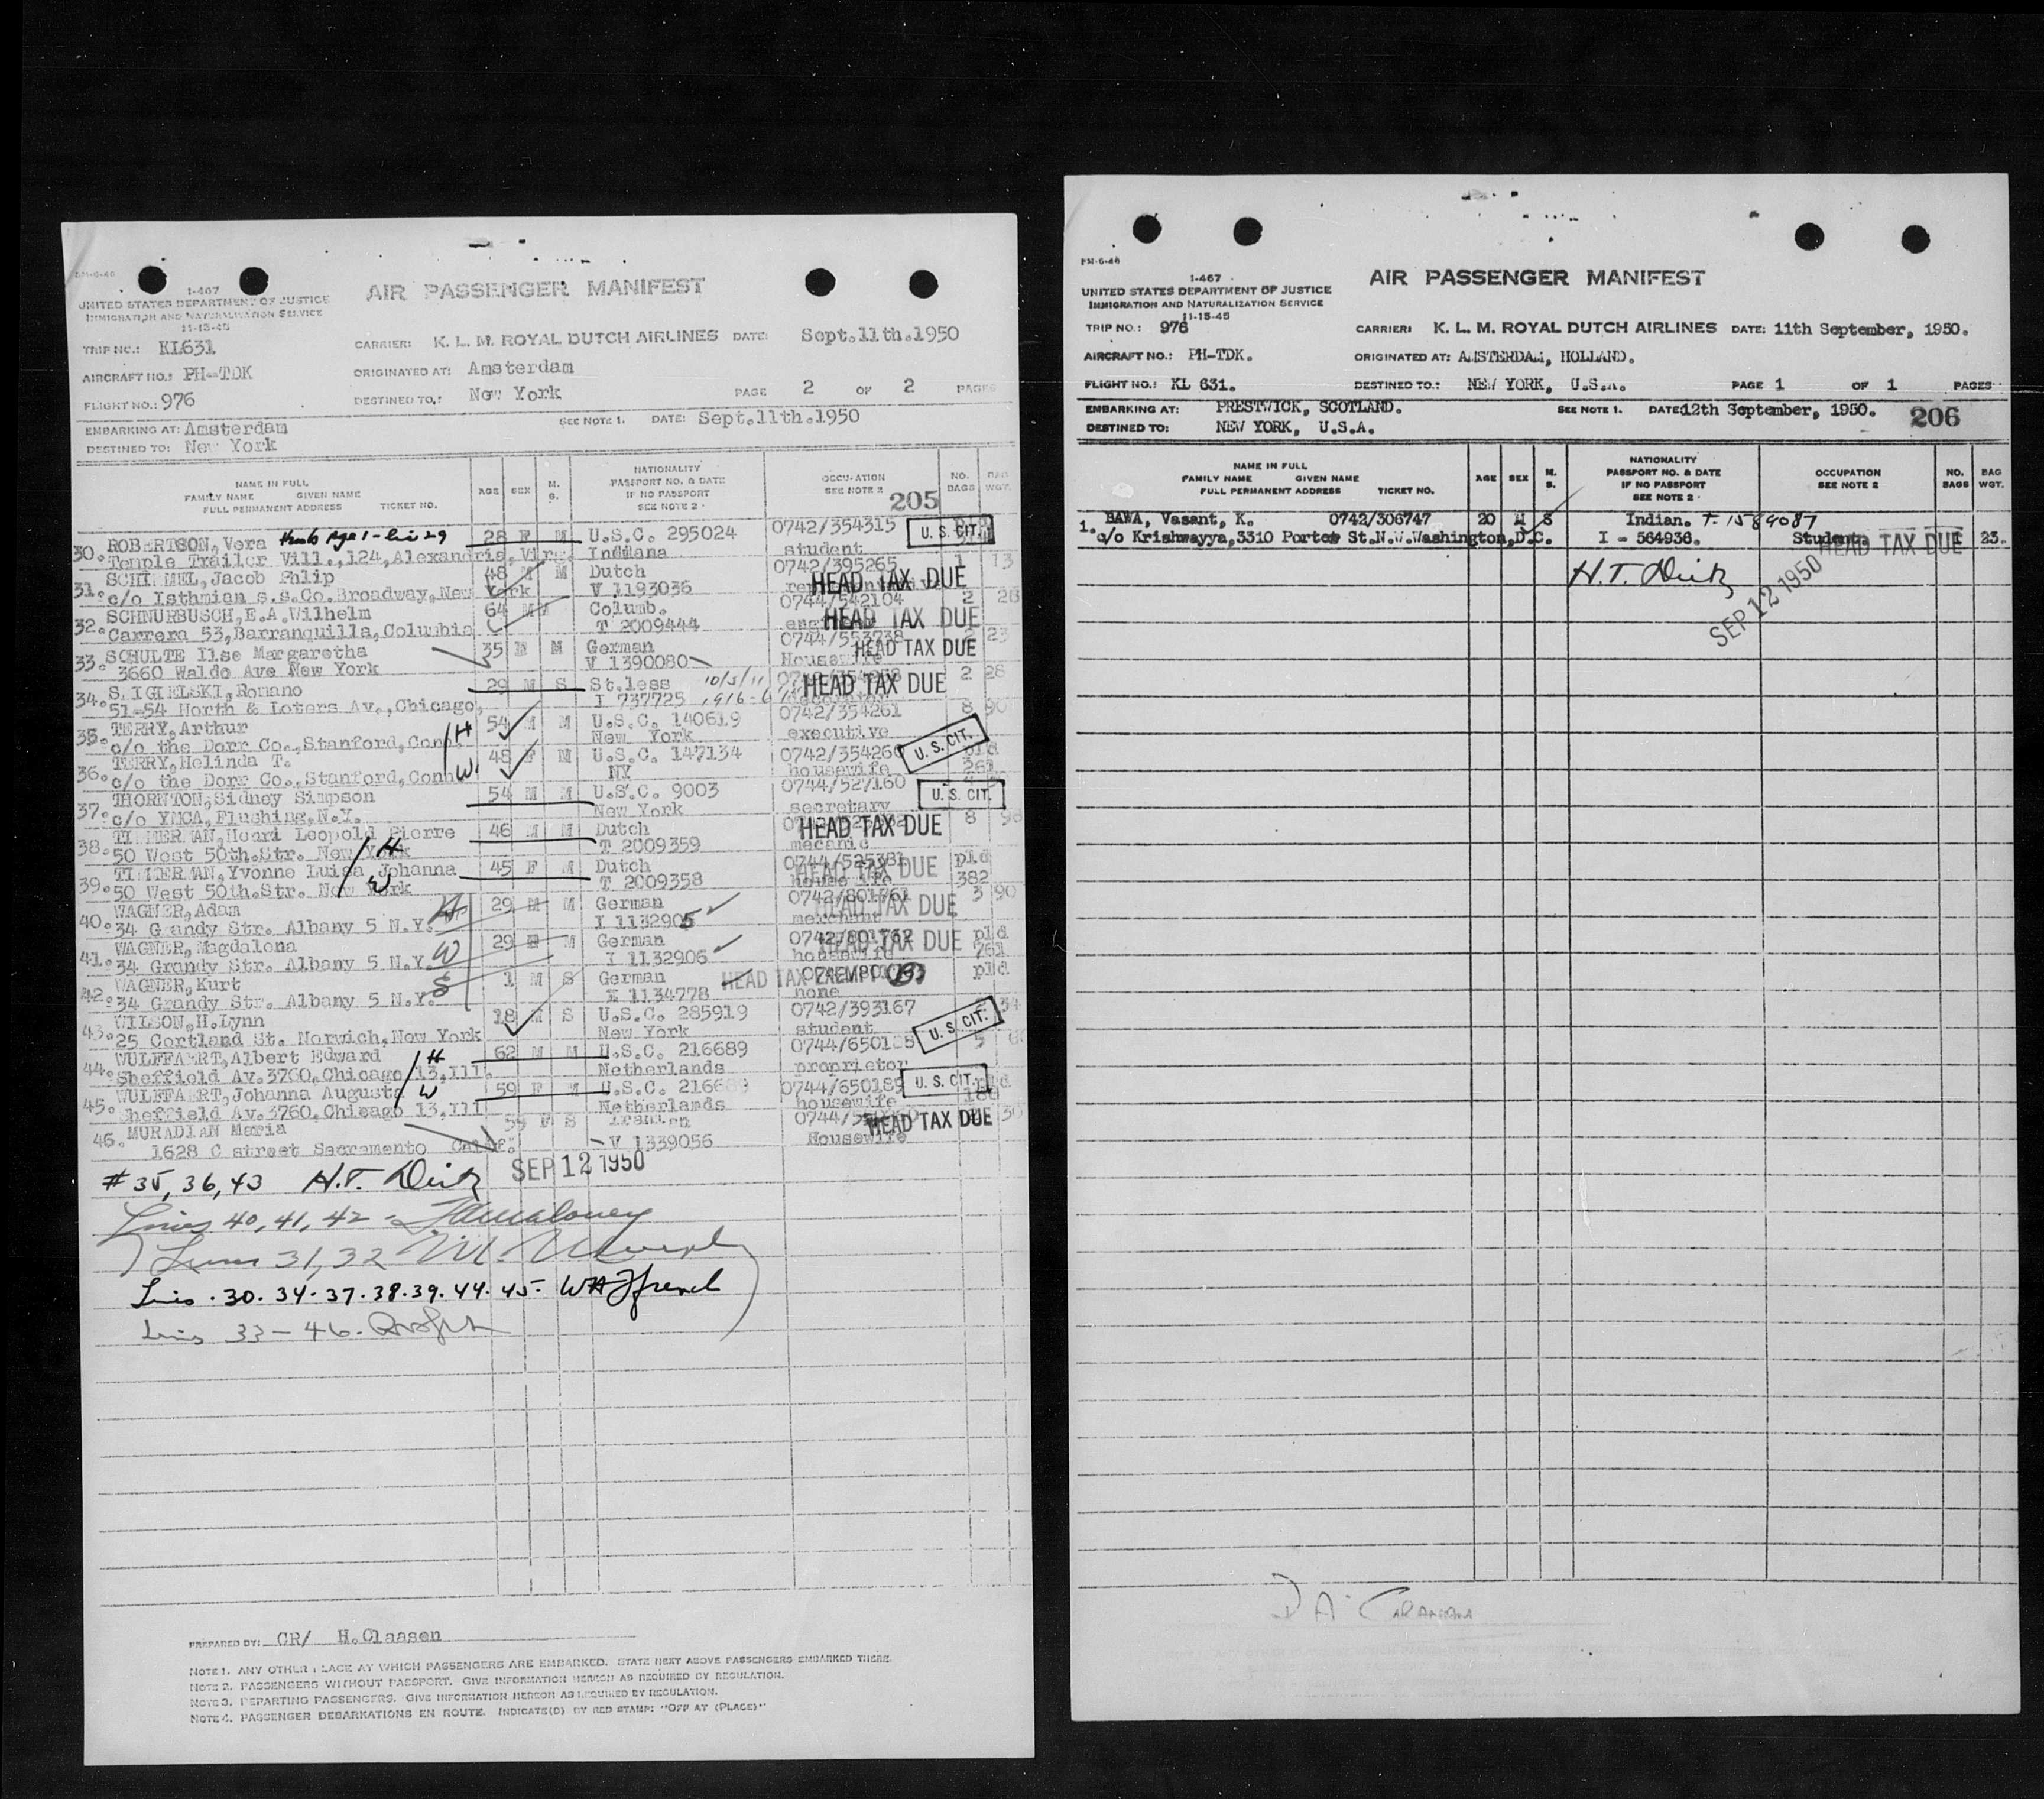 I-467
UNITED STATES DEPARTMENT OF JUSTICE
IMMIGRATION AND NATURALIZATION SERVICE
11-15-45
AIR PASSENGER MANIFEST
TRIP NO.: KL631
CARRIER: K. L. M. ROYAL DUTCH AIRLINES DATE: Sept.11th.1950
AIRCRAFT NO.: PH-TDK
ORIGINATED AT: Amsterdam
FLIGHT NO.: 976
DESTINED TO.: New York PAGE 2 OF 2 PAGES
EMBARKING AT: Amsterdam SEE NOTE 1. DATE: Sept.11th.1950
DESTINED TO: New York
NAME IN FULL
FAMILY NAME GIVEN NAME
FULL PERMANENT ADDRESS TICKET NO.
AGE SEX M. S.
NATIONALITY
PASSPORT NO. & DATE
IF NO PASSPORT
SEE NOTE 2
OCCUPATION
SEE NOTE 2
NO. BAGS
BAG WGT.
205
30. ROBERTSON, Vera 28 F M U.S.C. 295024 0742/354315 U. S. CIT.
Temple Trailer Vill.,124,Alexandria,Virg. Indiana student
31. SCHIMMEL, Jacob Fhlip 48 M M Dutch 0742/395265 1 13
c/o Isthmian s.s.Co.Broadway,New York V 1193036 HEAD TAX DUE
32. SCHNURBUSCH,E.A.Wilhelm 64 M Columb. 0744/542104 2 28
Carrera 53,Barranquilla,Columbia T 2009444 HEAD TAX DUE
33. SCHULTE Ilse Margaretha 35 M German 0744/553738 2 23
3660 Waldo Ave New York V 1390080 Housewife HEAD TAX DUE
34. Romano 29 M S St.less 10/5/11 2 28
51-54 North & Loters Av.,Chicago, I 737725 HEAD TAX DUE
35. TERRY, Arthur H 54 M M U.S.C. 140619 0742/354261 8 90
c/o the Dorr Co.,Stanford,Conn. New York executive
36. TERRY,Helinda T. W 48 F M U.S.C. 147134 0742/354260 U. S. CIT. pld
c/o the Dorr Co.,Stanford,Conn. NY housewife 261
37. THORNTON,Sidney Simpson 54 M M U.S.C. 9003 0744/527160 U. S. CIT.
c/o YMCA, Flushing,N.Y. New York secretary
38. TIMMERMAN,Henri Leopold Pierre H 46 M M Dutch HEAD TAX DUE 8 98
50 West 50th.Str. New York T 2009359 mecanic
39. TIMMERMAN,Yvonne Luisa Johanna W 45 F M Dutch 0744/525381 HEAD TAX DUE pld
50 West 50th.Str. New York T 2009358 housewife 382
40. WAGNER,Adam H 29 M M German 0742/801761 HEAD TAX DUE 3 90
34 Grandy Str. Albany 5 N.Y. I 1132905 merchant
41. WAGNER,Magdalena W 29 F M German 0742/801762 HEAD TAX DUE pld
34 Grandy Str. Albany 5 N.Y. I 1132906 housewife 761
42. WAGNER,Kurt S 1 M S German HEAD TAX EXEMPT pld
34 Grandy Str. Albany 5 N.Y. I 1134778 none
43. WILSON,H.Lynn 18 M S U.S.C. 285919 0742/393167 U. S. CIT. 34
25 Cortland St. Norwich,New York New York student
44. WULFFAERT,Albert Edward H 62 M M U.S.C. 216689 5
Sheffield Av.3760,Chicago 13,Ill. Netherlands proprietor
45. WULFFAERT,Johanna Augusta W 59 F M U.S.C. 0744/650189 U. S. CIT. pld
Sheffield Av.3760,Chicago 13,Ill Netherlands housewife
46. MURADIAN Maria 59 F S HEAD TAX DUE
1628 C street Sacramento Calif. V 1339056 Housewife
SEP 12 1950
#35, 36, 43 H.T.
Lines 40, 41, 42 -
Lines 31, 32 M.
Lines .30. 34. 37. 38. 39. 44. 45-
Lines 33 - 46.
PREPARED BY: CR/ H.Claasen
NOTE 1. ANY OTHER PLACE AT WHICH PASSENGERS ARE EMBARKED. STATE NEXT ABOVE PASSENGERS EMBARKED THERE.
NOTE 2. PASSENGERS WITHOUT PASSPORT. GIVE INFORMATION HEREON AS REQUIRED BY REGULATION.
NOTE 3. DEPARTING PASSENGERS. GIVE INFORMATION HEREON AS REQUIRED BY REGULATION.
NOTE 4. PASSENGER DEBARKATIONS EN ROUTE. INDICATE(D) BY RED STAMP: "OFF AT (PLACE)"
FM-6-46
I-467
UNITED STATES DEPARTMENT OF JUSTICE
IMMIGRATION AND NATURALIZATION SERVICE
11-15-45
AIR PASSENGER MANIFEST
TRIP NO.: 976
CARRIER: K. L. M. ROYAL DUTCH AIRLINES DATE: 11th September, 1950.
AIRCRAFT NO.: PH-TDK.
ORIGINATED AT: AMSTERDAM, HOLLAND.
FLIGHT NO.: KL 631.
DESTINED TO.: NEW YORK, U.S.A. PAGE 1 OF 1 PAGES
EMBARKING AT: PRESTWICK, SCOTLAND. SEE NOTE 1. DATE: 12th September, 1950. 206
DESTINED TO: NEW YORK, U.S.A.
NAME IN FULL
FAMILY NAME GIVEN NAME
FULL PERMANENT ADDRESS TICKET NO.
AGE SEX M. S.
NATIONALITY
PASSPORT NO. & DATE
IF NO PASSPORT
SEE NOTE 2
OCCUPATION
SEE NOTE 2
NO. BAGS
BAG WGT.
1. BAWA, Vasant, K. 0742/306747 20 M S Indian. T-1589087
c/o Krishwayya,3310 Porter St.N.W.Washington,D.C. I - 564936. Student. HEAD TAX DUE 1 23.
H.T.
SEP 12 1950